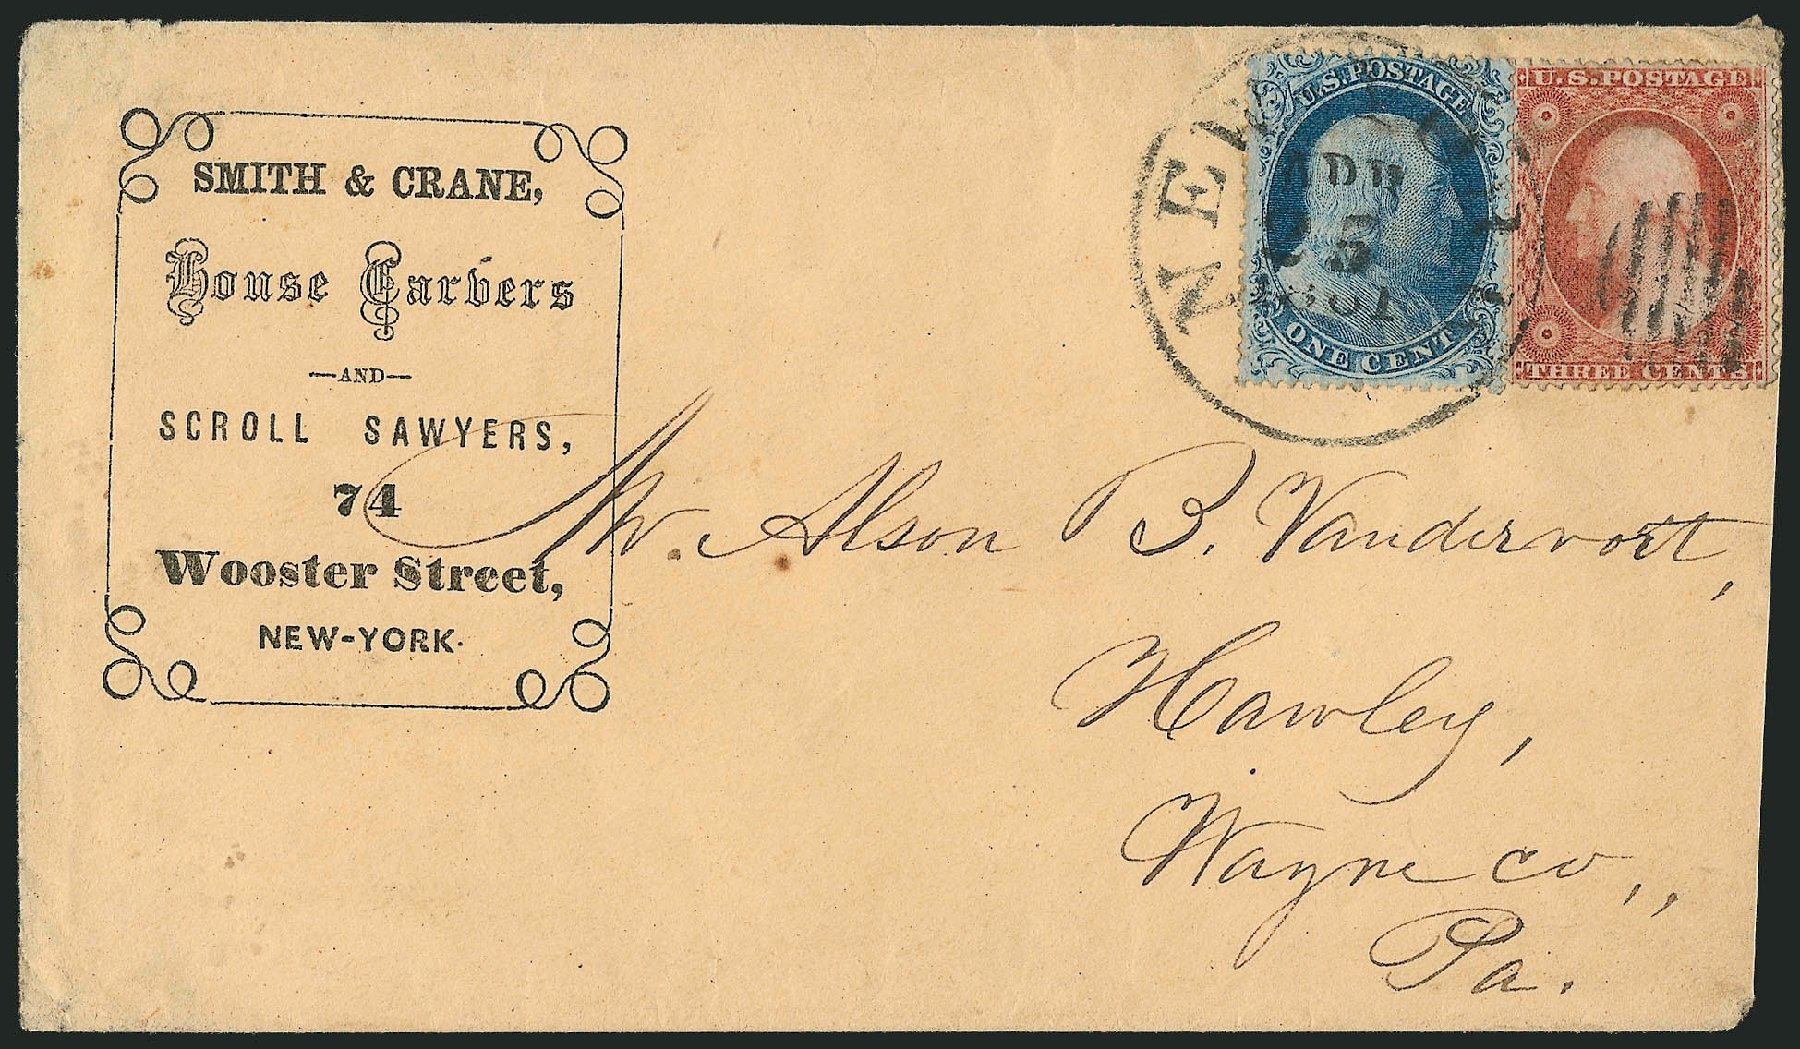 SMITH & CRANE,
House Carvers
—AND—
SCROLL SAWYERS,
74
Wooster Street,
NEW-YORK.
U.S. POSTAGE
ONE CENT
U.S. POSTAGE
THREE CENTS
NEW
25
1861
Mr. Alson B. Vandervort,
Hawley,
Wayne co,,
Pa.